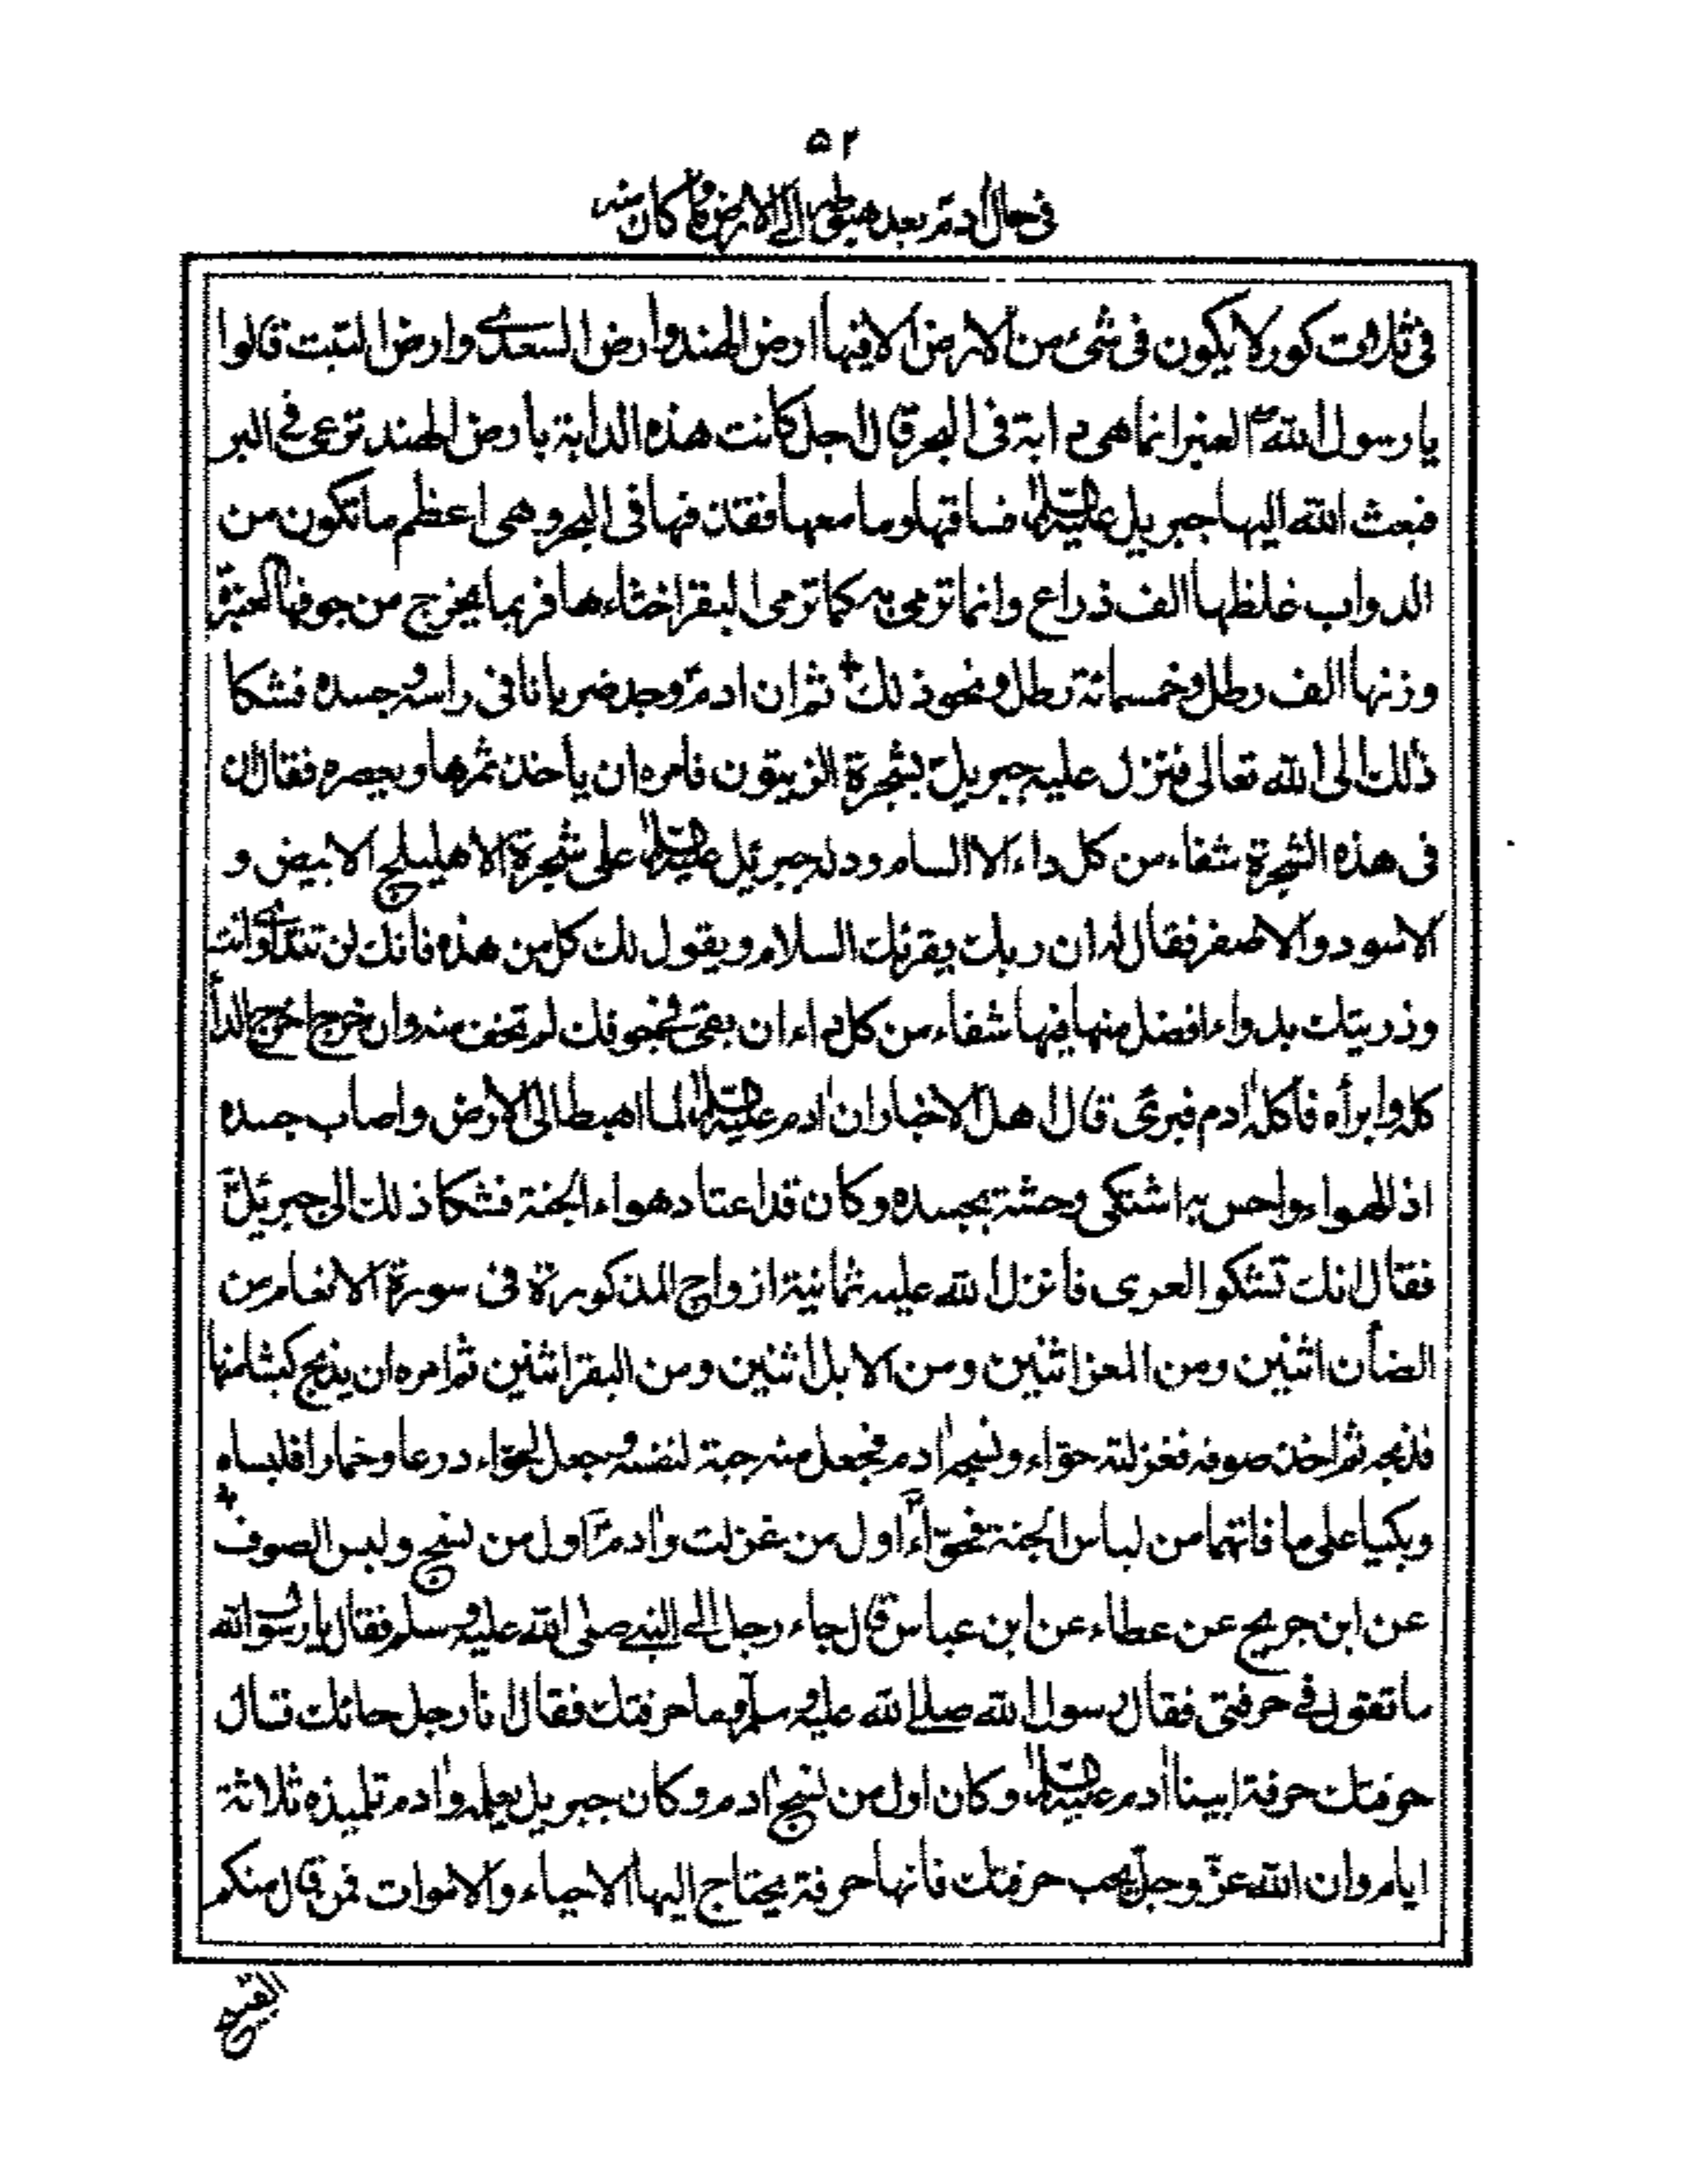 ۵۲
فى حال ادم ع بعد هبوطه الى الارض وما كان منه
فى ثلاث كور لا يكون فى شئ من الارض الا فيها ارض الهند وارض السعدى وارض التبت قالوا
يا رسول الله ص العنبر انما هى دابة فى البحر قال اجل كانت هذه الدابة بارض الهند ترعى فى البر
فبعث الله اليها جبريل عليه السلام فساقها وما معها فقذفها فى البحر وهى اعظم ما تكون من
الدواب غلظها الف ذراع وانما ترمى به كما ترمى البقر اخثاءها فربما يخرج من جوفها العنبرة
وزنها الف رطل وخمسمائة رطل ونحو ذلك ثم ان ادم ع وجد ضربانا فى راسه وجسده فشكا
ذلك الى الله تعالى فنزل عليه جبريل ع بشجرة الزيتون فامره ان ياخذ ثمرها ويعصره فقال ان
فى هذه الشجرة شفاء من كل داء الا السام ودله جبرئيل عليه السلام على شجرة الاهليلج الابيض و
الاسود والاصفر فقال له ان ربك يقرئك السلام ويقول لك كل من هذه فانك لن تتداوى انت
وذريتك بدواء افضل منها فيها شفاء من كل داء ان بقى فى جوفك لم تخف منه وان خرج اخرج الداء
كله وابرأه فأكله ادم فبرئ قال اهل الاخبار ان ادم عليه السلام لما اهبط الى الارض واصاب جسده
اذى الهواء واحس به اشتكى وحشة بجسده وكان قد اعتاد هواء الجنة فشكا ذلك الى جبرئيل ع
فقال انك تشكو العرى فانزل الله عليه ثمانية ازواج المذكورة فى سورة الانعام من
الضأن اثنين ومن المعز اثنين ومن الابل اثنين ومن البقر اثنين ثم امره ان يذبح كبشا منها
فذبحه ثم اخذ صوفه فغزلته حواء ونسجه ادم فجعل منه جبة لنفسه وجعل لحواء درعا وخمارا فلبساه
وبكيا على ما فاتهما من لباس الجنة فحواء اول من غزلت وادم ع اول من نسج ولبس الصوف
عن ابن جريج عن عطاء عن ابن عباس قال جاء رجل الى النبى صلى الله عليه وسلم فقال يا رسول الله
ما تقول فى حرفتى فقال رسول الله صلى الله عليه وسلم وما حرفتك فقال انا رجل حائك قال
حرفتك حرفة ابينا ادم عليه السلام وكان اول من نسج ادم وكان جبريل يعلمه وادم تلميذه ثلاثة
ايام وان الله عزّ وجلّ يحب حرفتك فانها حرفة يحتاج اليها الاحياء والاموات فمن قال منكم
القبيح